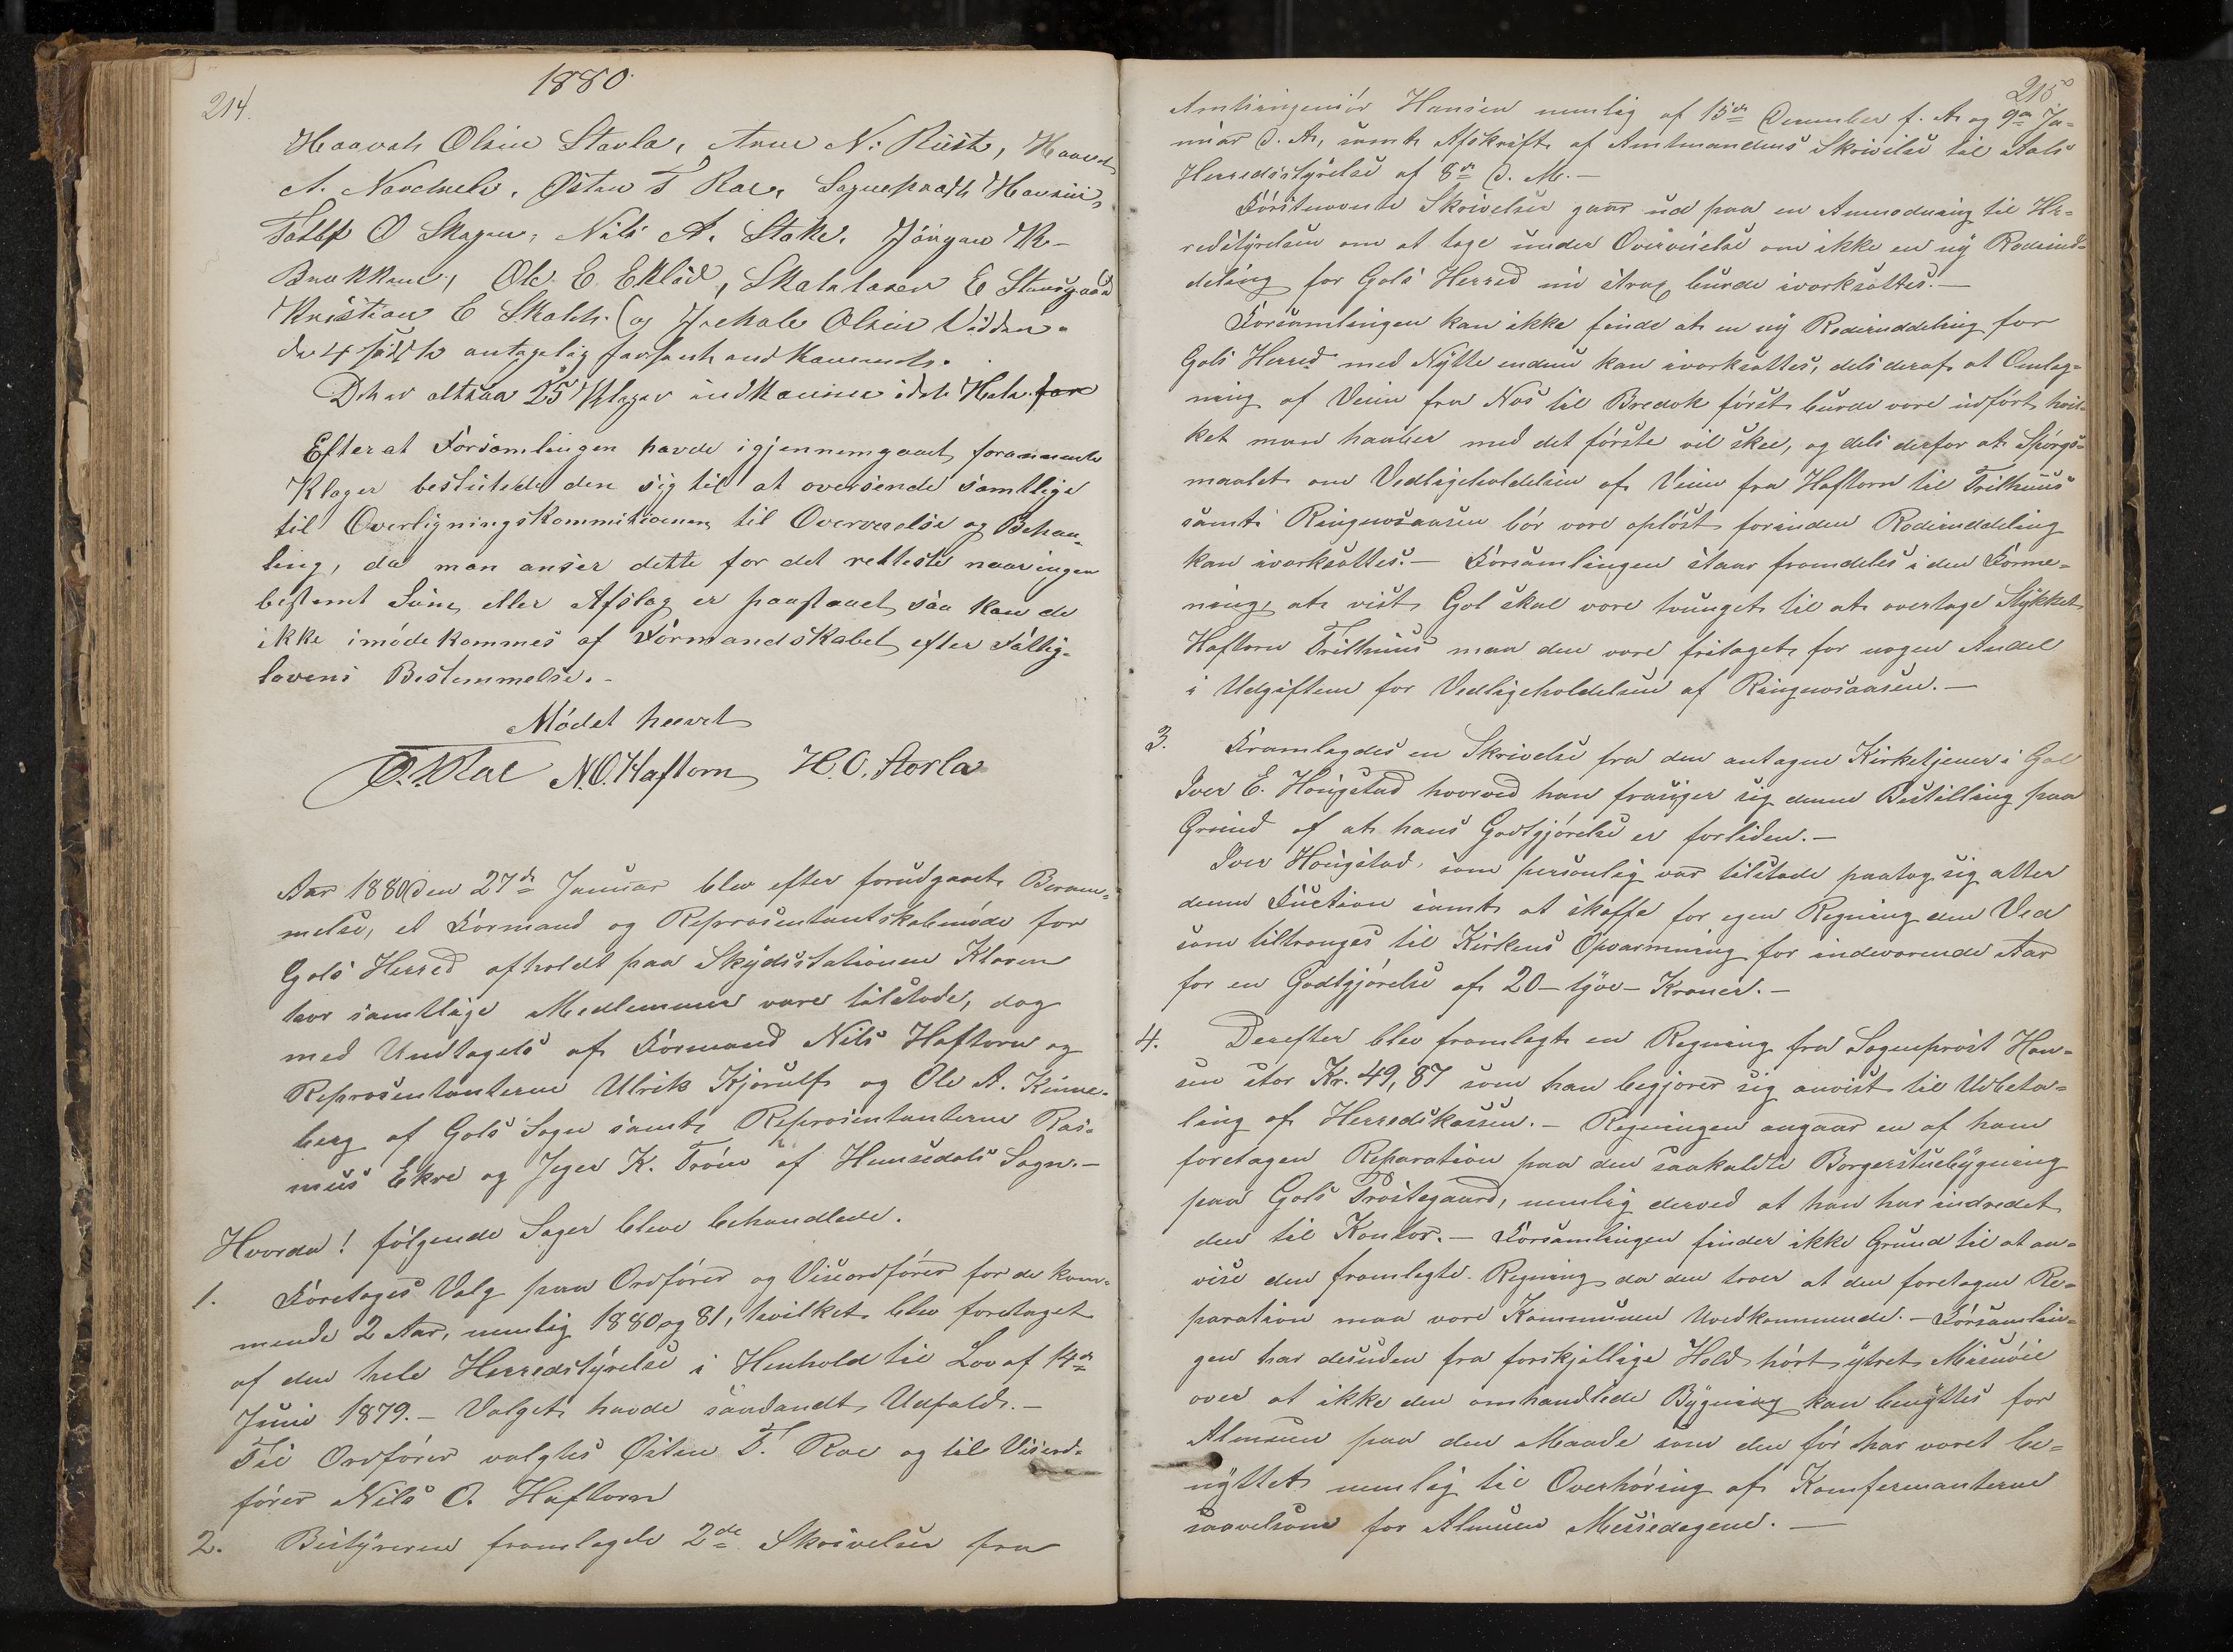 214.
1880
Haavar Olsen Storla, Arne N. Ruste, Haavar
A. Østen T Roe, Sogneprest Hansen,
Tollef O Skagen, Nils A. Stake, Jørgen K.
Ole E. Eklid, E
Kristian E (og Olsen
de 4 sidste antagelig forsent indkommende.
Det er altsaa 25 Klager indkomne i det Hele.
Efter at Forsamlingen havde igjennemgaaet forannævnte
Klager besluttede den sig til at oversende samtlige
til Overligningskommitioenen til Overveielse og Behan-
ling, da man anser dette for det retteste naar ingen
bestemt Sum, eller Afslag er paastaaet, saa kan de
ikke imødekommes af Formandskabet efter Fattig-
lovens Bestemmelse.-
Mødet hævet
T. Roe N.O. Haftorn H.O. Storla
Aar 1880 den 27de Januar blev efter forudgaaet Beram-
melse, et Formand og Repræsentantskabsmøde for
Gols Herred afholdt paa Skydsstationen Kloven
hvor samtlige Medlemmer vare tilstede, dog
med Undtagels af Formand Nils Haftorn og
Repræsentanterne Ulrik Kjørulf og Ole A. Kinne-
berg af Gols Sogn samt Repræsentanterne Ras-
mus Ekre og K. Trøim af Hemsedals Sogn.-
Hvorda! følgende Sager bleve behandlede.
1. Foretoges Valg paa Ordfører og Viseordfører for de kom-
mende 2 Aar, nemlig 1880 og 81, hvilket blev foretaget
af den hele Herredstyrelse i Henhold til Lov af 14de
Juni 1879.- Valget havde saadandt Udfald.-
Til Ordfører valgtes Østen T. Roe og til Viseord-
fører Nils O. Haftorn
2. Bestyreren fremlagde 2de Skrivelser fra
215
Amtsingeniør Hansen nemlig af 15de December f. A. og 9de Ja-
nuar d. A., samt Afskrift af Amtmandens Skrivelse til Aals
Herredsstyrelse af 8de d. M.-
Førstnævnte Skrivelser gaar ud paa en Anmodning til He-
redstyrelsen om at tage under Overveielse om ikke en ny Rodeind-
deling for Gols Herred nu strax burde iværksættes.-
Forsamlingen kan ikke finde at en ny Rodeinddeling for
Gols Herred med Nytte endnu kan iværksættes, dels deraf at Omlæg-
ning af Veien fra Næs til Bredok først burde være udført, hvil-
ket man haaber med det første vil skee, og dels derfor at Spørgs-
maalet om Vedligeholdelsen af Veien fra Haftorn til Trilhuus
samt Ringnesaasen bør være opløst forinden Rodeinddeling
kan iværksættes.- Forsamlingen staar fremdeles i den Forme-
ning, at vist Gol skal være tvunget til at overtage Stykket
Haftorn Trilhuus maa den være fritaget for nogen Andel
i Udgiften for Vedligeholdelsen af Ringnesaasen.-
3. Fremlagdes en Skrivelse fra den antagne Kirketjener i Gol
Iver E. Hougstad hvorved han frasiger sig denne Bestilling paa
Grund af at hans Godtgjørelse er forliden.-
Iver Hougstad, som personlig var tilstede paatog sig atter
denne Fuction samt at skaffe for egen Regning den Ved
som tiltrænges til Kirkens Opvarmning for indeværende Aar
for en Godtgjørelse af 20 - tyve - Kroner.-
4. Derefter blev fremlagt en Regning fra Sogneprest Han-
sen stor Kr. 49,87 som han begjærer sig anvist til Udbeta-
ling af Herredskassen.- Regningen angaar en af ham
foretagen Reparation paa den saakaldte Borgerstuebygning
paa Gols Præstegaard, nemlig derved at han har indredet
den til Kontor.- Forsamlingen finder ikke Grund til at an-
vise den fremlagte Regning da den troer at den foretagne Re-
paration maa være Kommunen Uvedkommende.- Forsamlin-
gen har desuden fra forskjellige Hold hørt ytret Misnøie
over at ikke den omhandlede Bygning kan benyttes for
Almuen paa den Maade som den før har været be-
nyttet nemlig til Overhøring af Komfermanterne
saavelsom for Almuen Messedagene.-